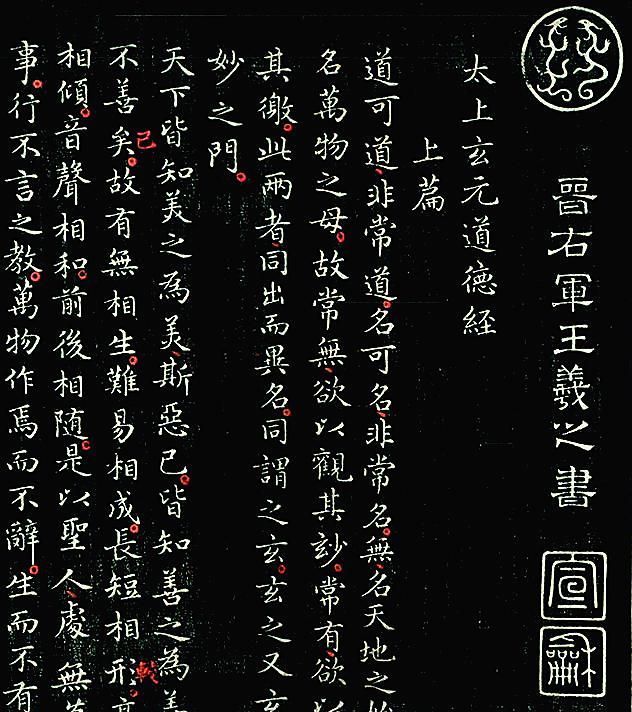 晉右軍王羲之書
宣
龢
太上玄元道德経
上篇
道可道、非常道。名可名、非常名。無、名天地之始
名萬物之母。故常無、欲以觀其玅。常有、欲以
其徼。此兩者、同出而異名。同謂之玄。玄之又玄
妙之門。
天下皆知美之為美、斯惡已。皆知善之為善
不善矣。故有無相生。難易相成。長短相形。高
已
較
相傾。音聲相和。前後相随。是以聖人、處無為
事。行不言之教。萬物作焉而不辭。生而不有